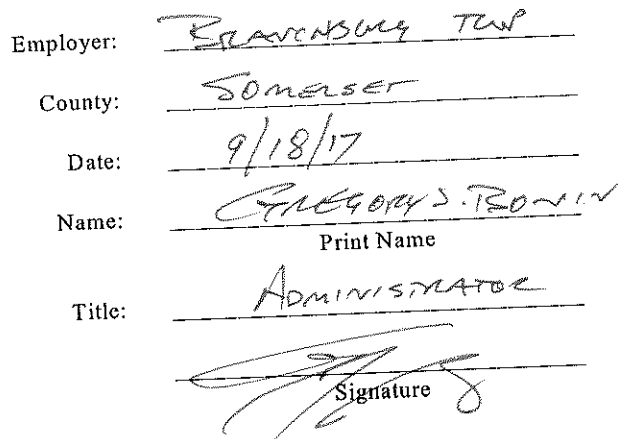 Employer: BRANCHBURG TWP
County: SOMERSET
Date: 9/18/17
Name: GREGORY J. BONIN
Print Name
Title: ADMINISTRATOR
Signature